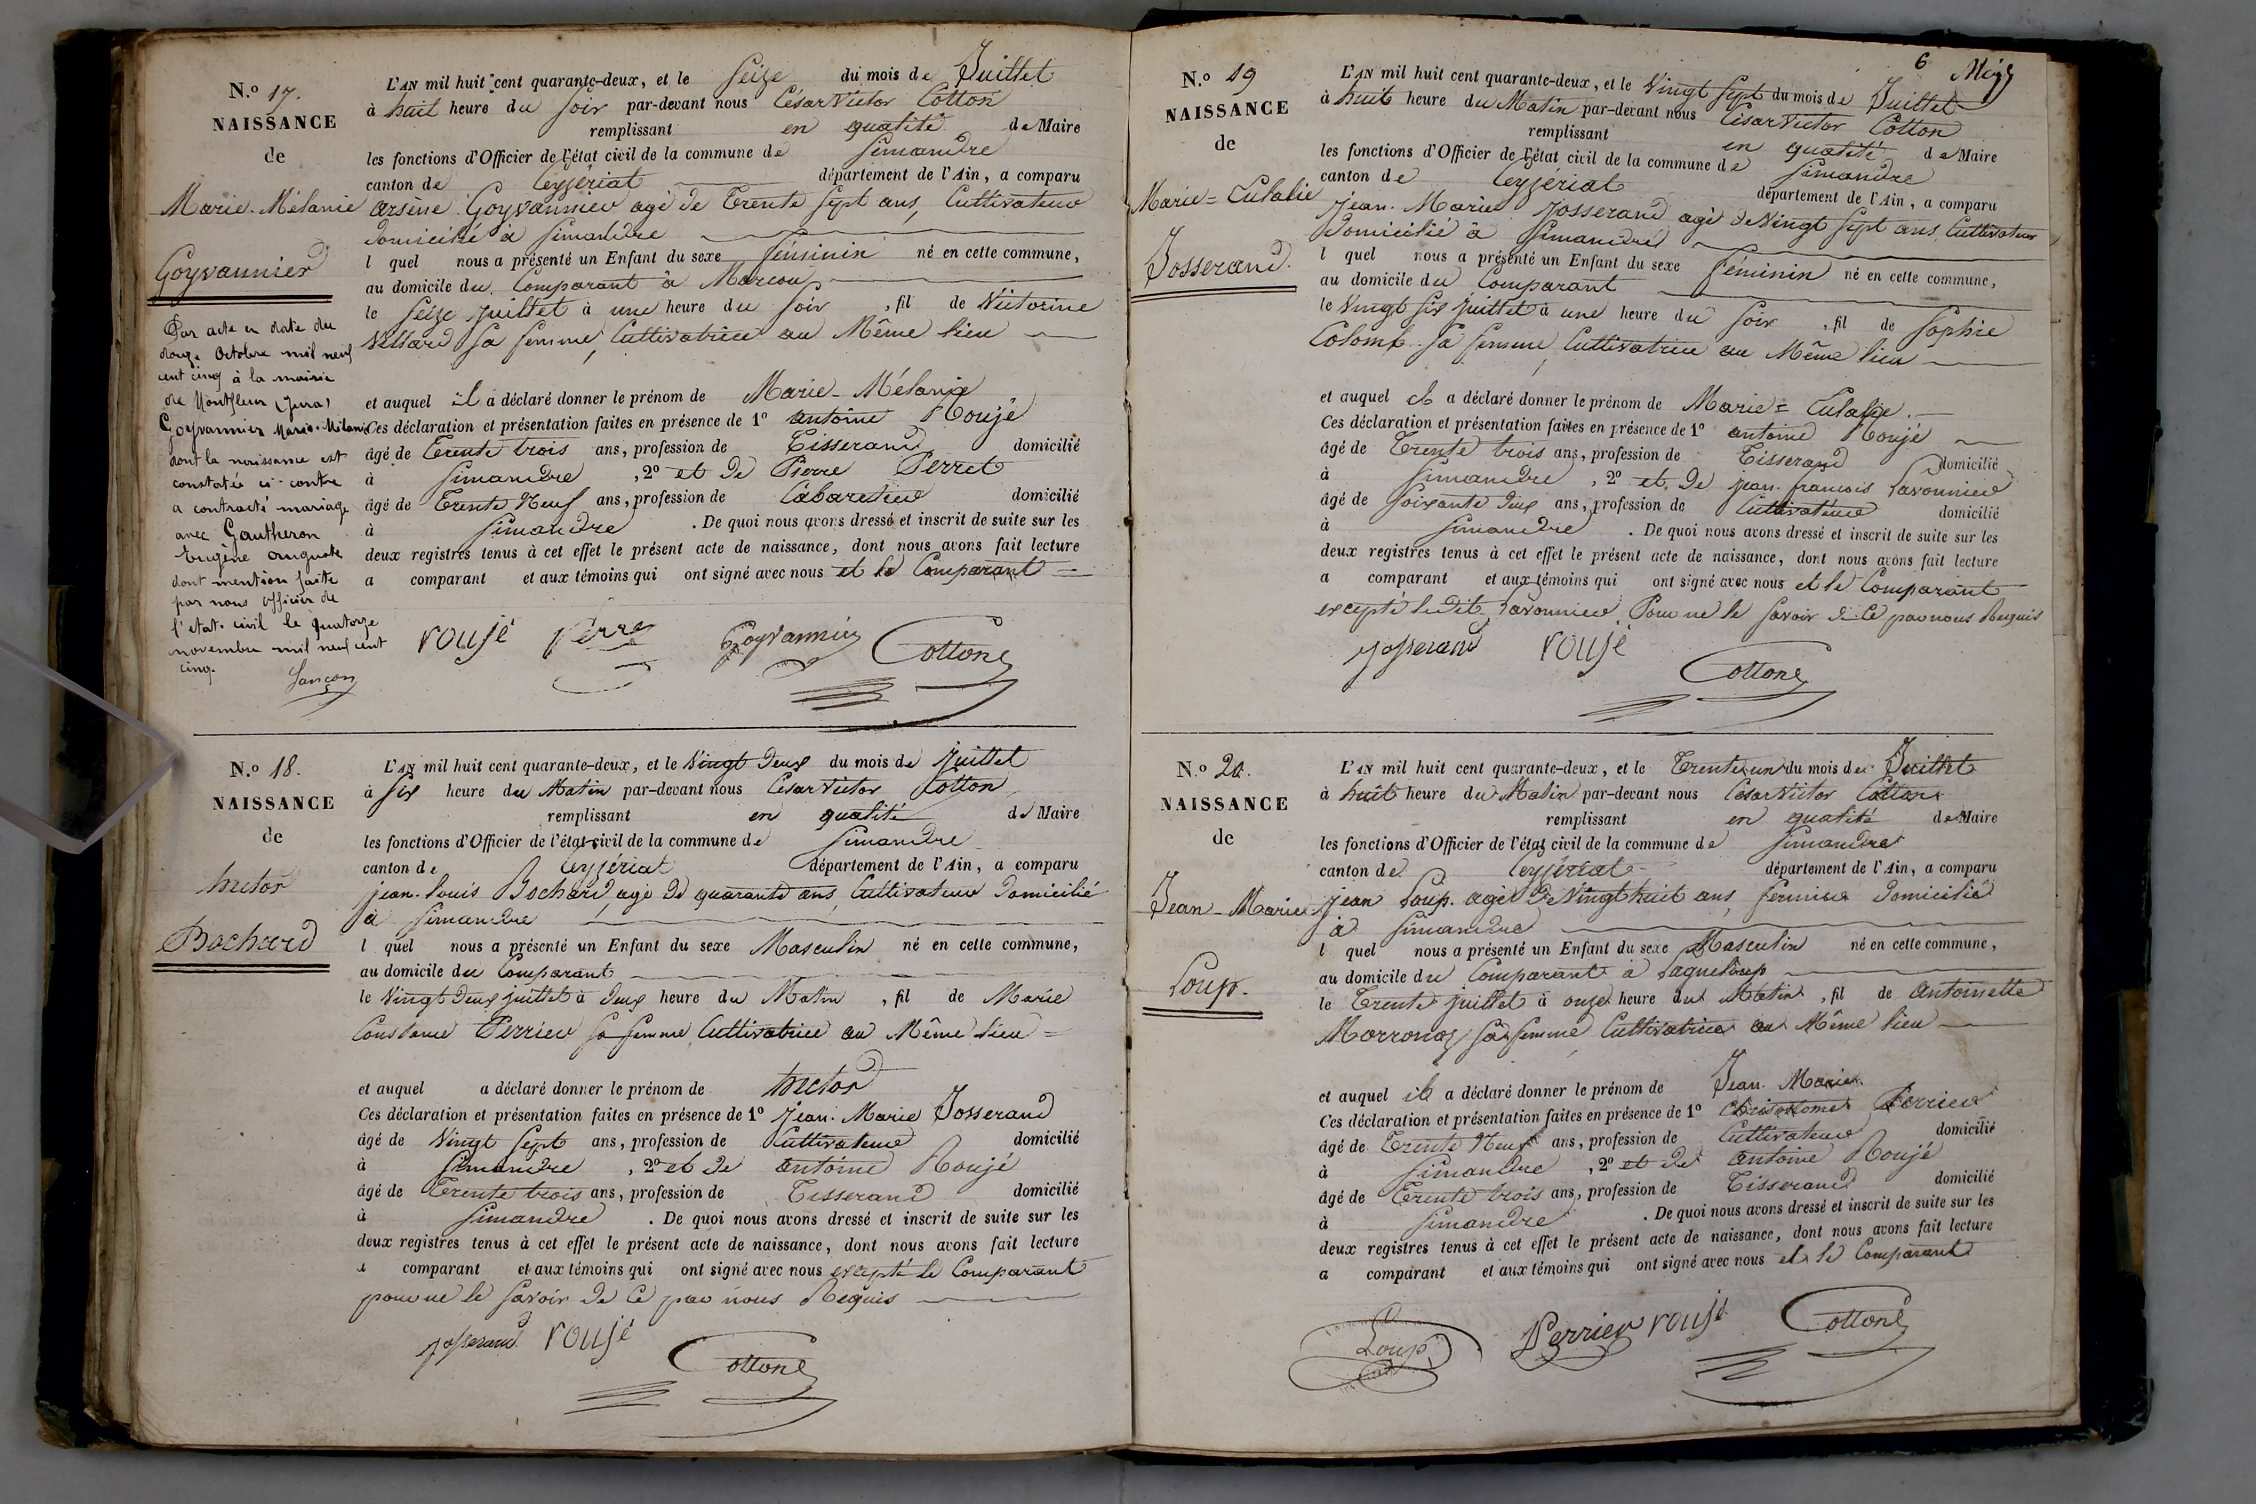 N.º 17.
NAISSANCE
de
Marie-Mélanie
Goyvannier
Par acte en date du
douze Octobre mil neuf
cent cinq à la mairie
de Montfleur (Jura)
Goyvannier Marie-Mélanie
dont la naissance est
constatée ci-contre
a contracté mariage
avec Gautheron
Eugène auguste
dont mention faite
par nous officier de
l'etat-civil le quatorze
novembre mil neuf cent
cinq.
L'AN mil huit cent quarante-deux, et le Seize du mois de Juillet
à huit heure du Soir par-devant nous César Victor Cotton
remplissant en qualité de Maire
les fonctions d'Officier de l'état civil de la commune de Simandre
canton de Ceyzériat département de l'Ain, a comparu
arsène Goyvannier agé de Trente Sept ans, Cultivateur
domicilié à Simandre
l quel nous a présenté un Enfant du sexe féminin né en cette commune,
au domicile du Comparant à Marcou
le Seize juillet à une heure du Soir, fil de Victorine
Villard Sa femme, Cultivatrice au Même lieu
et auquel il a déclaré donner le prénom de Marie-Mélanie
Ces déclaration et présentation faites en présence de 1º antoine Roujé
âgé de Trente trois ans, profession de Tisserand domicilié
à Simandre, 2º et de Pierre Perret
âgé de Trente Neuf ans, profession de Cabaretier domicilié
à Simandre. De quoi nous avons dressé et inscrit de suite sur les
deux registres tenus à cet effet le présent acte de naissance, dont nous avons fait lecture
a comparant et aux témoins qui ont signé avec nous et le Comparant
rouje Perret Goyvannier Cotton
N.º 18.
NAISSANCE
de
hector
Bochard
L'AN mil huit cent quarante-deux, et le Vingt Deux du mois de juillet
à Six heure du Matin par-devant nous César Victor Cotton
remplissant en qualité de Maire
les fonctions d'Officier de l'état civil de la commune de Simandre
canton de Ceyzériat département de l'Ain, a comparu
jean-louis Bochard, agé de quarante ans, Cultivateur Domicilié
à Simandre
l quel nous a présenté un Enfant du sexe Masculin né en cette commune,
au domicile du Comparant
le Vingt Deux juillet à Deux heure du Matin, fil de Marie
Constance Perrier Sa femme, Cultivatrice au Même lieu
et auquel a déclaré donner le prénom de hector
Ces déclaration et présentation faites en présence de 1º jean-Marie Josserand
âgé de Vingt Sept ans, profession de Cultivateur domicilié
à Simandre, 2º et de antoine Roujé
âgé de Trente trois ans, profession de Tisserand domicilié
à Simandre. De quoi nous avons dressé et inscrit de suite sur les
deux registres tenus à cet effet le présent acte de naissance, dont nous avons fait lecture
a comparant et aux témoins qui ont signé avec nous excepté le Comparant
pour ne le Savoir de ce par nous Requis
josserand rouje Cotton
6
N.º 19
NAISSANCE
de
Marie=Eulalie
Josserand.
L'AN mil huit cent quarante-deux, et le Vingt Sept du mois de Juillet
à huit heure du Matin par-devant nous César Victor Cotton
remplissant en qualité de Maire
les fonctions d'Officier de l'état civil de la commune de Simandre
canton de Ceyzériat département de l'Ain, a comparu
jean-Marie Josserand agé de Vingt Sept ans, Cultivateur
Domicilié à Simandre
l quel nous a présenté un Enfant du sexe féminin né en cette commune,
au domicile du Comparant
le Vingt Six juillet à une heure du Soir, fil de Sophie
Colomb Sa femme, Cultivatrice au Même lieu
et auquel il a déclaré donner le prénom de Marie=Eulalie.
Ces déclaration et présentation faites en présence de 1º antoine Roujé
âgé de Trente trois ans, profession de Tisserand domicilié
à Simandre, 2º et de jean-françois Savonnier
âgé de Soixante Deux ans, profession de Cultivateur domicilié
à Simandre. De quoi nous avons dressé et inscrit de suite sur les
deux registres tenus à cet effet le présent acte de naissance, dont nous avons fait lecture
a comparant et aux témoins qui ont signé avec nous et le Comparant
excepté ledit Savonnier Pour ne le Savoir de Ce par nous Requis
josserand rouje Cotton
N.º 20.
NAISSANCE
de
Jean-Marie
Loup.
L'AN mil huit cent quarante-deux, et le Trente un du mois de Juillet
à huit heure du Matin par-devant nous César Victor Cotton
remplissant en qualité de Maire
les fonctions d'Officier de l'état civil de la commune de Simandre
canton de Ceyzériat département de l'Ain, a comparu
jean Loup agé de Vingt huit ans, fermier Domicilié
à Simandre
l quel nous a présenté un Enfant du sexe Masculin né en cette commune,
au domicile du Comparant à
le Trente juillet à onze heure du Matin, fil de antoinette
Marronas Sa femme, Cultivatrice au Même lieu
et auquel il a déclaré donner le prénom de Jean-Marie
Ces déclaration et présentation faites en présence de 1º Perrier
âgé de Trente Neuf ans, profession de Cultivateur domicilié
à Simandre, 2º et de antoine Roujé
âgé de Trente trois ans, profession de Tisserand domicilié
à Simandre. De quoi nous avons dressé et inscrit de suite sur les
deux registres tenus à cet effet le présent acte de naissance, dont nous avons fait lecture
a comparant et aux témoins qui ont signé avec nous et le Comparant
Loup Perrier rouje Cotton